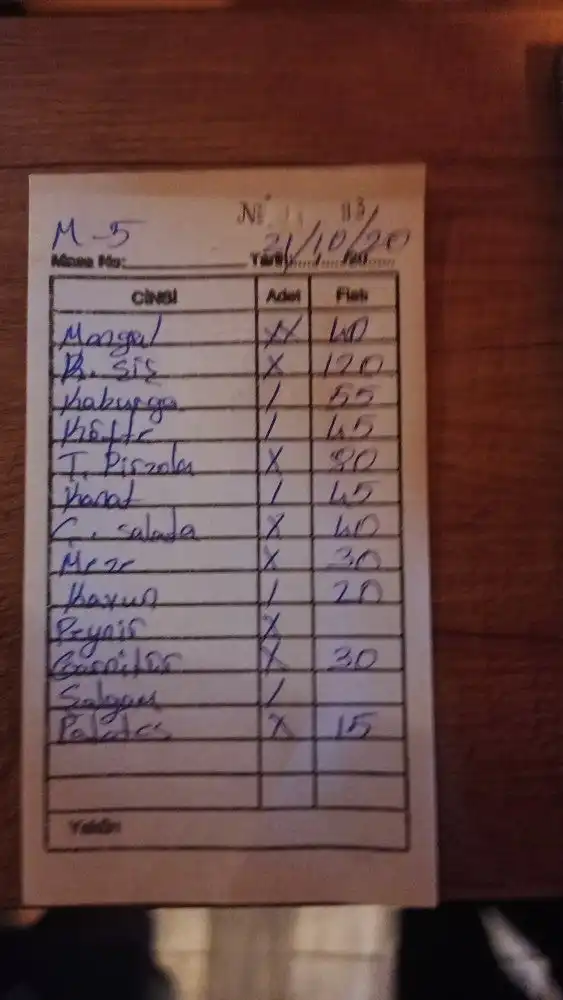 M-5
21/10/20
Masa No: Tarih: / /20
CİNSİ Adet Fiatı
Mangal XX 40
K. Şiş X 120
Kaburga / 55
Köfte / 45
T. Pirzola X 80
Kanat / 45
Ç. salata X 40
Meze X 30
Kavun / 20
Peynir X
Garnitür X 30
Şalgam /
Patates X 15
Yekûn